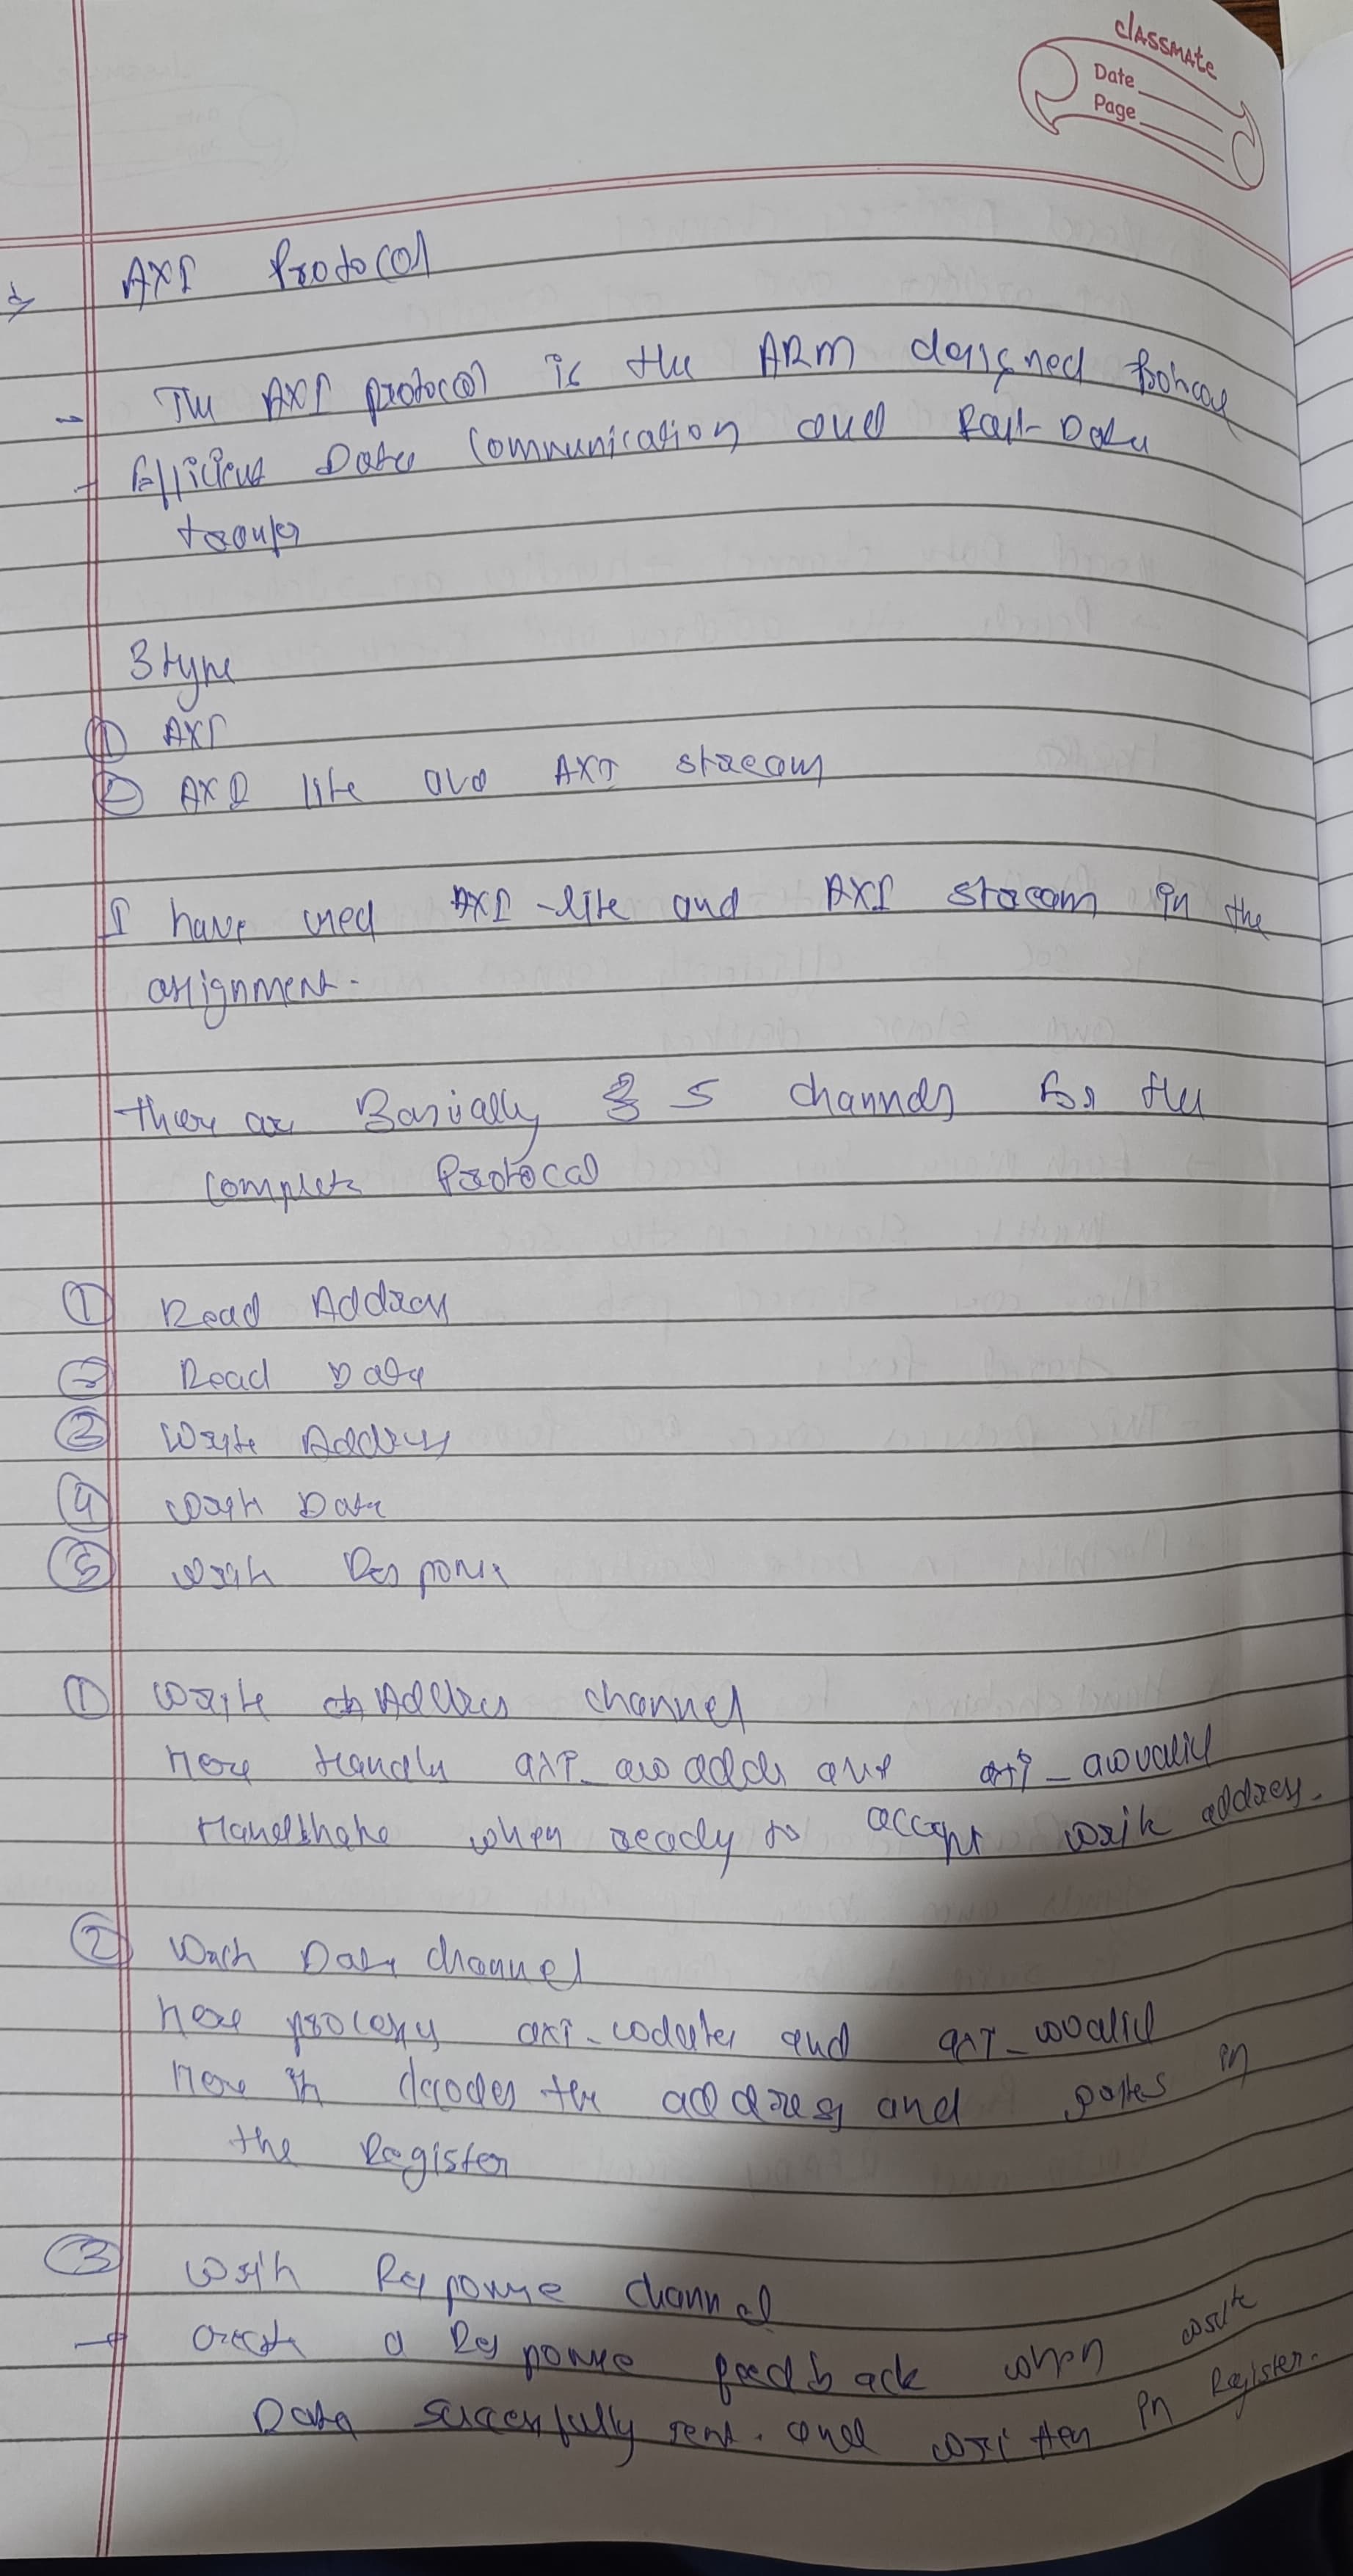 classmate
Date
Page
AXI Protocol
- The AXI protocol is the ARM designed
- Efficient Data Communication and Fast Data
transfer
3 type
① AXI
② AXI lite and AXI stream
I have used AXI-lite and AXI stream in the
assignment.
there are Basically 5 channels for the
complete Protocol
① Read Address
② Read Data
③ Write Address
④ Write Data
⑤ Write Response
① Write Address channel
here Handle axi_awaddr and axi_awvalid
Handshake when ready to accept write address.
② Write Data channel
here process axi_wdata and axi_wvalid
here it decodes the address and in
the Register
③ Write Response channel
→ create a Response feedback when write
Data successfully sent. and written in Register.